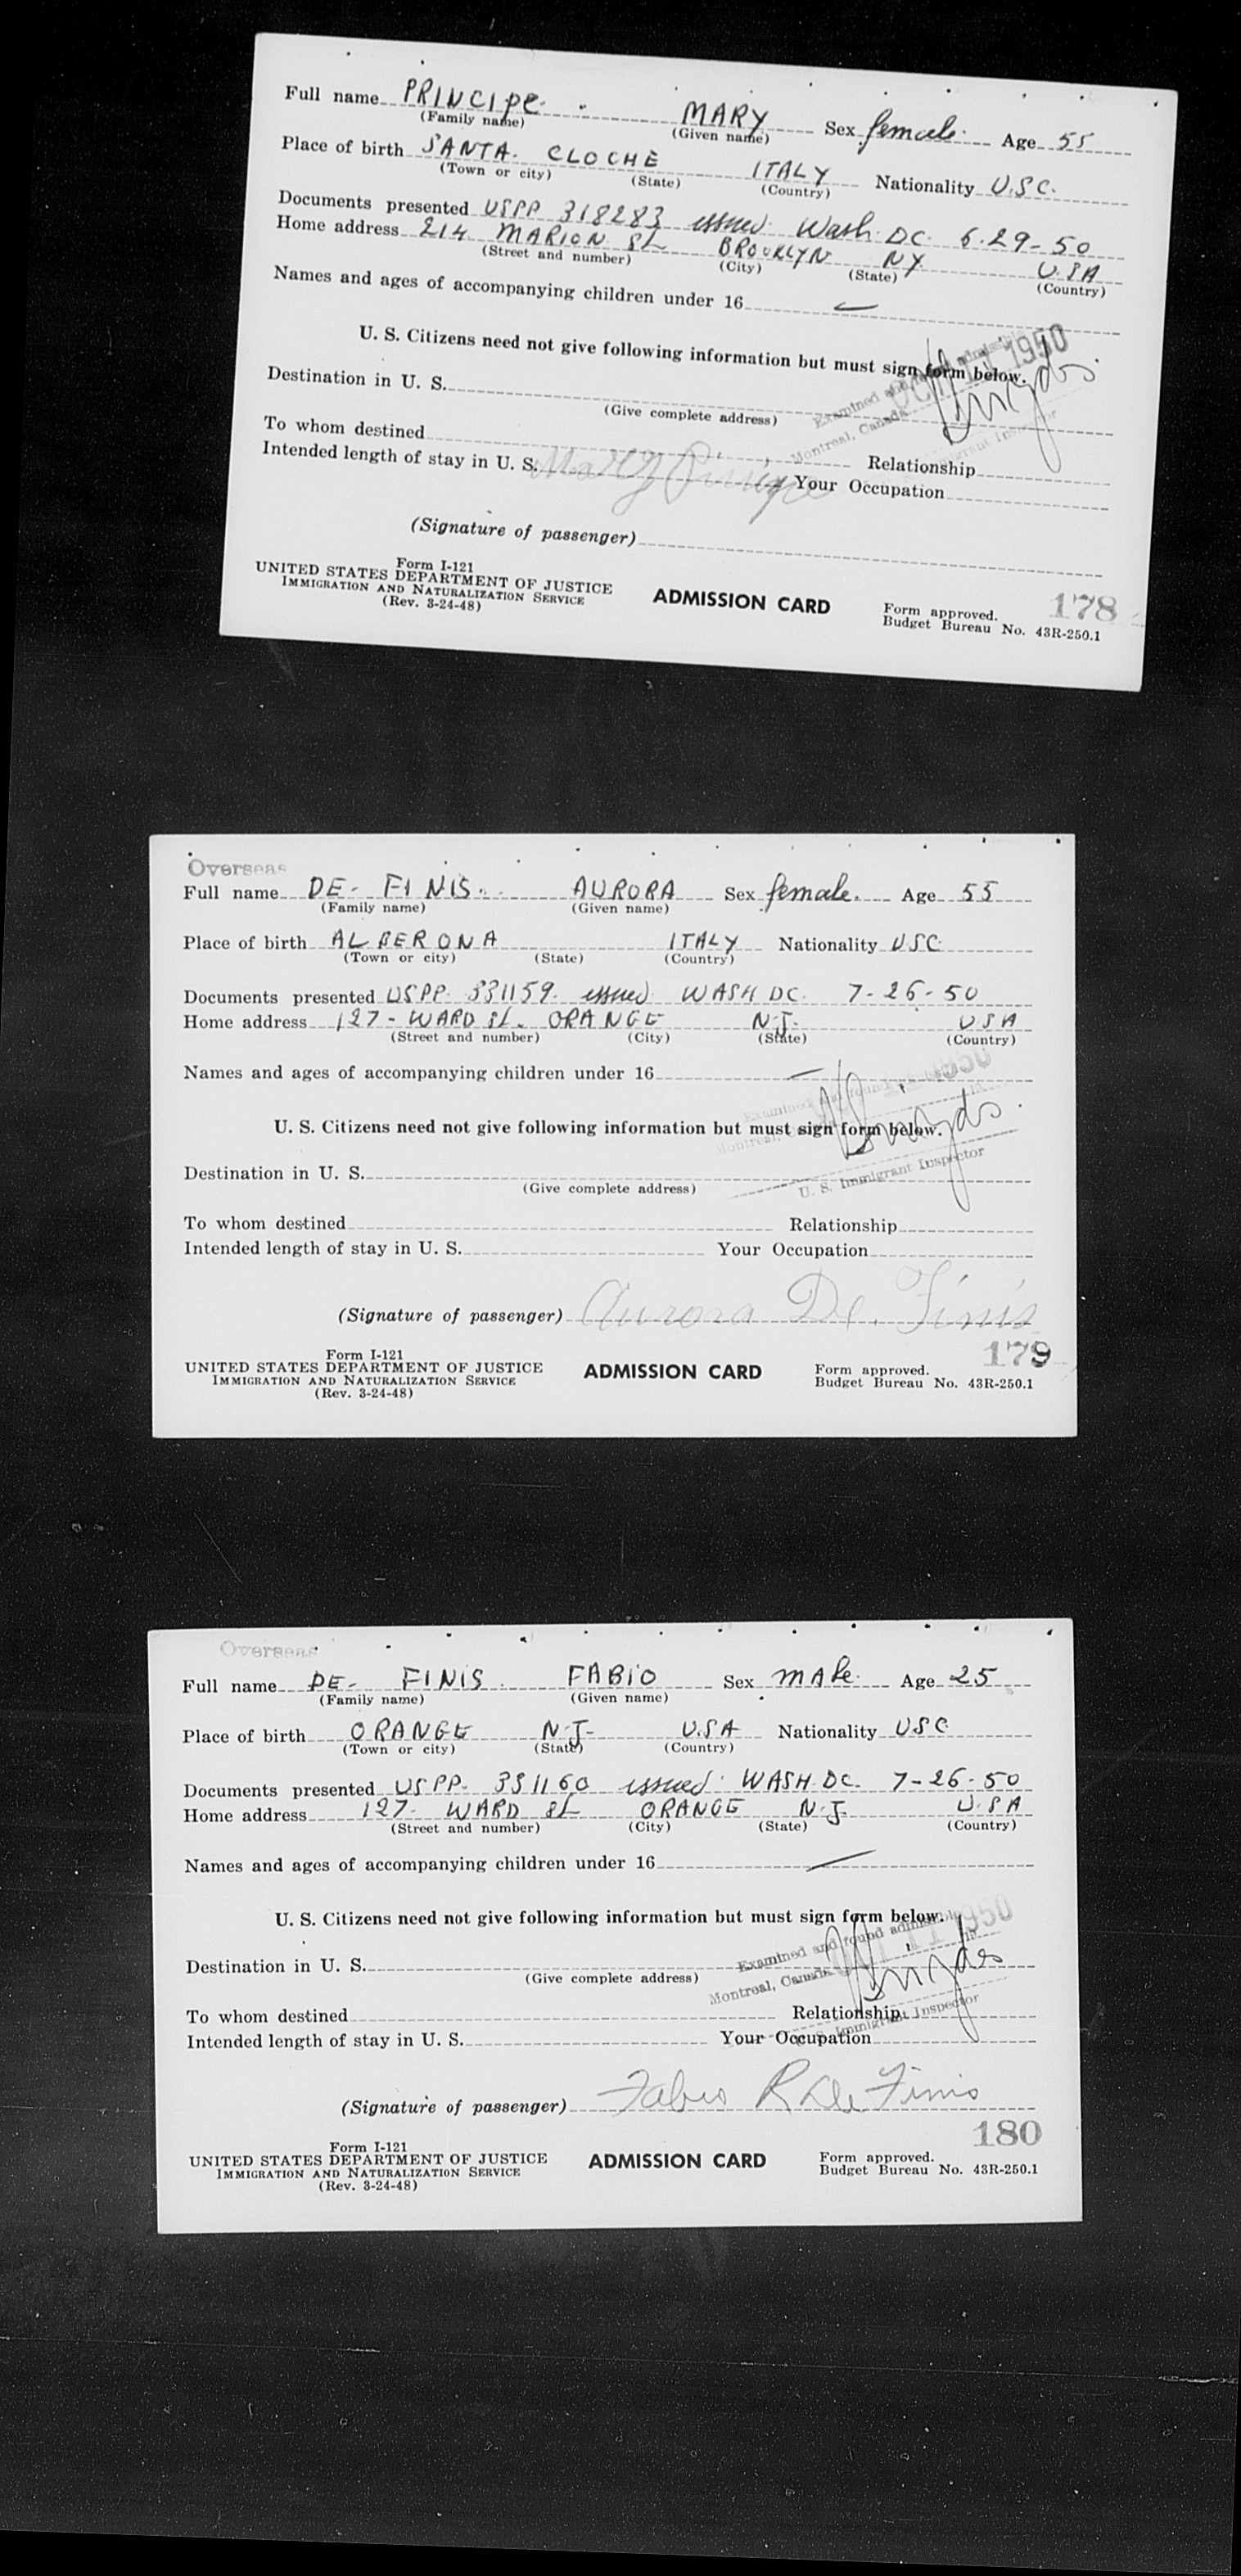 Full name PRINCIPE MARY Sex female. Age 55
(Family name) (Given name)
Place of birth SANTA. CLOCHE ITALY Nationality U.S.C.
(Town or city) (State) (Country)
Documents presented USPP 318283 issued Wash. DC. 6.29-50
Home address 214 MARION St BROOKLYN NY U.S.A
(Street and number) (City) (State) (Country)
Names and ages of accompanying children under 16 —
U. S. Citizens need not give following information but must sign form below.
1950
Examined and admissible
Montreal, Canada
Destination in U. S.
(Give complete address)
To whom destined Relationship
Intended length of stay in U. S. Your Occupation
Mary Principe
(Signature of passenger)
Form I-121
UNITED STATES DEPARTMENT OF JUSTICE
IMMIGRATION AND NATURALIZATION SERVICE
(Rev. 3-24-48)
ADMISSION CARD
Form approved.
Budget Bureau No. 43R-250.1
178
Overseas
Full name DE- FINIS. AURORA Sex female. Age 55
(Family name) (Given name)
Place of birth ALBERONA ITALY Nationality USC
(Town or city) (State) (Country)
Documents presented USPP. 331159. issued WASH DC. 7-26-50
Home address 127- WARD St. ORANGE N.J. USA
(Street and number) (City) (State) (Country)
Names and ages of accompanying children under 16 —
U. S. Citizens need not give following information but must sign form below.
1950
Examined and found
Montreal,
U. S. Immigrant Inspector
Destination in U. S.
(Give complete address)
To whom destined Relationship
Intended length of stay in U. S. Your Occupation
(Signature of passenger) Aurora De. Finis
Form I-121
UNITED STATES DEPARTMENT OF JUSTICE
IMMIGRATION AND NATURALIZATION SERVICE
(Rev. 3-24-48)
ADMISSION CARD
Form approved.
Budget Bureau No. 43R-250.1
179
Overseas
Full name DE- FINIS FABIO Sex male. Age 25
(Family name) (Given name)
Place of birth ORANGE N.J- U.SA Nationality USC
(Town or city) (State) (Country)
Documents presented USPP. 331160 issued WASH. DC. 7-26-50
Home address 127- WARD St ORANGE N.J. U.SA
(Street and number) (City) (State) (Country)
Names and ages of accompanying children under 16 —
U. S. Citizens need not give following information but must sign form below.
1950
Examined and found admissible
Montreal, Canada
U. S. Immigrant Inspector
Destination in U. S.
(Give complete address)
To whom destined Relationship
Intended length of stay in U. S. Your Occupation
(Signature of passenger) Fabio R De Finis
Form I-121
UNITED STATES DEPARTMENT OF JUSTICE
IMMIGRATION AND NATURALIZATION SERVICE
(Rev. 3-24-48)
ADMISSION CARD
Form approved.
Budget Bureau No. 43R-250.1
180